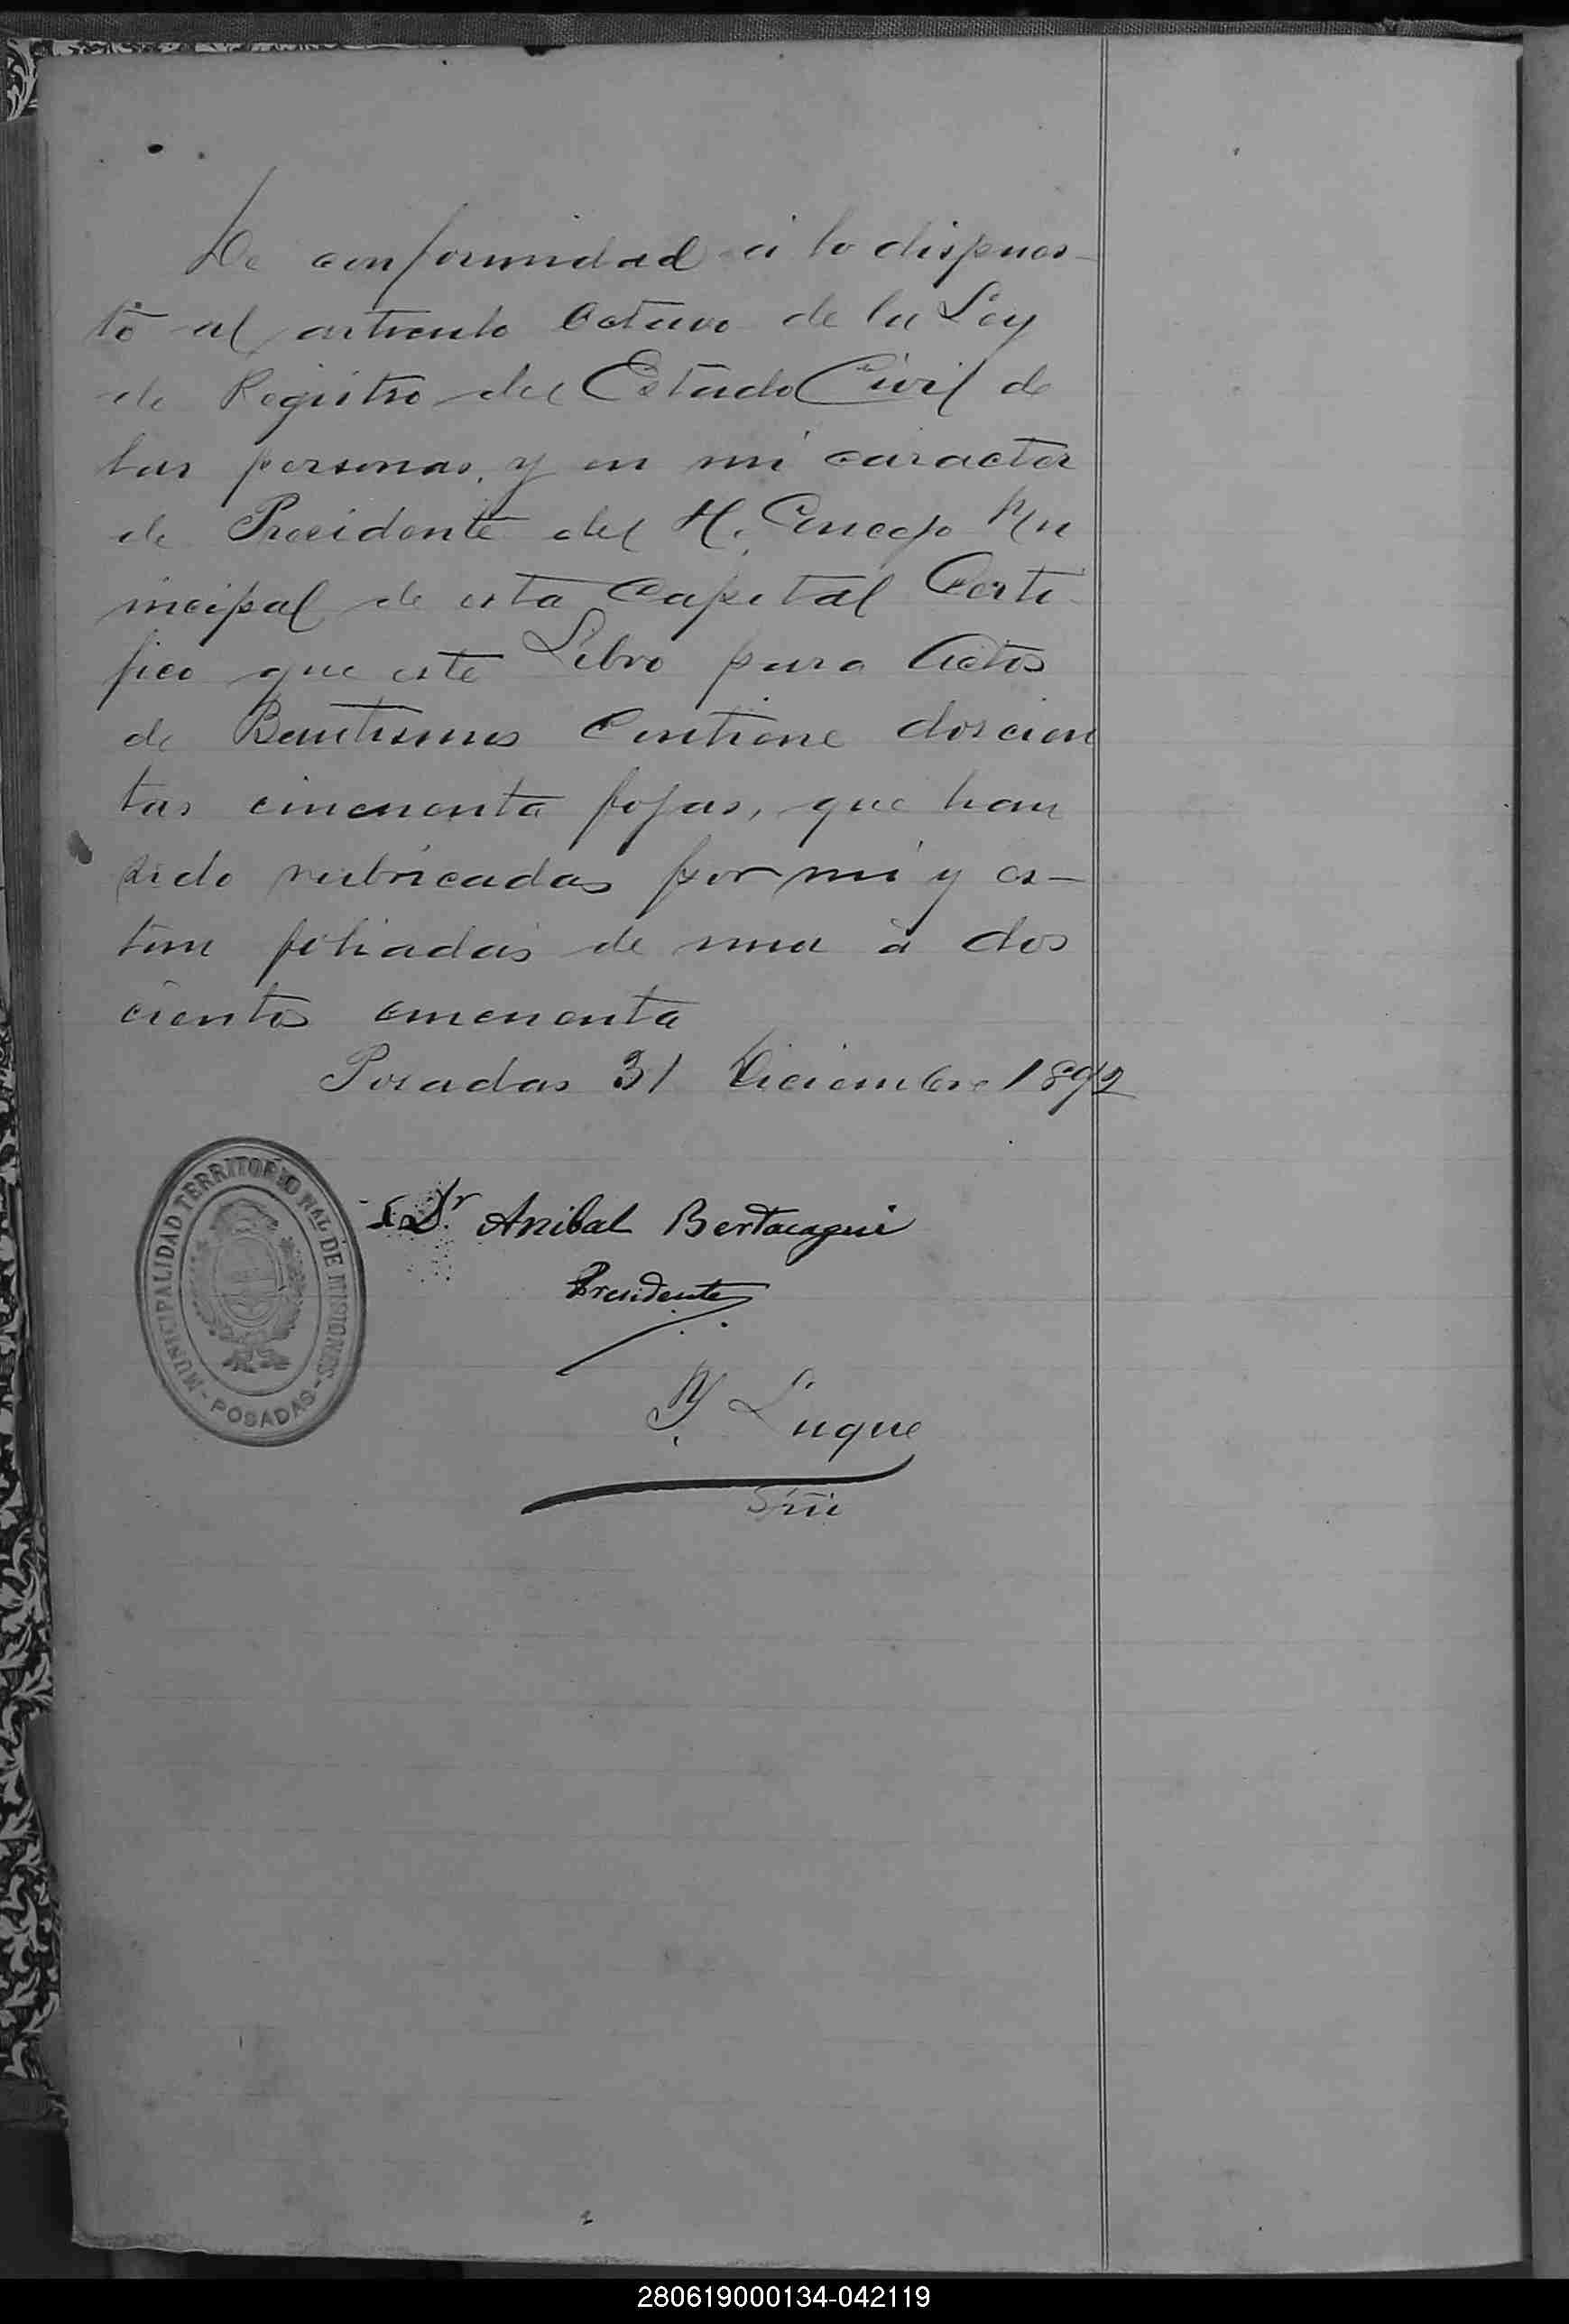 De conformidad á lo dispues-
to al articulo Octavo de la Ley
de Registro del Estado Civil de
las personas, y en mi caracter
de Presidente del H. Concejo Mu
nicipal de esta Capital Certi-
fico que este Libro para Actos
de Bautismos Contiene doscien
tas cincuenta fojas, que han
sido rubricadas por mi y es-
tan foliadas de una à dos
cientos cincuenta
Posadas 31 Diciembre 1892
Dr Anibal Bertacagni
Presidente
Luque
Srio
MUNICIPALIDAD TERRITORIO NAL DE MISIONES
- POSADAS -
280619000134-042119